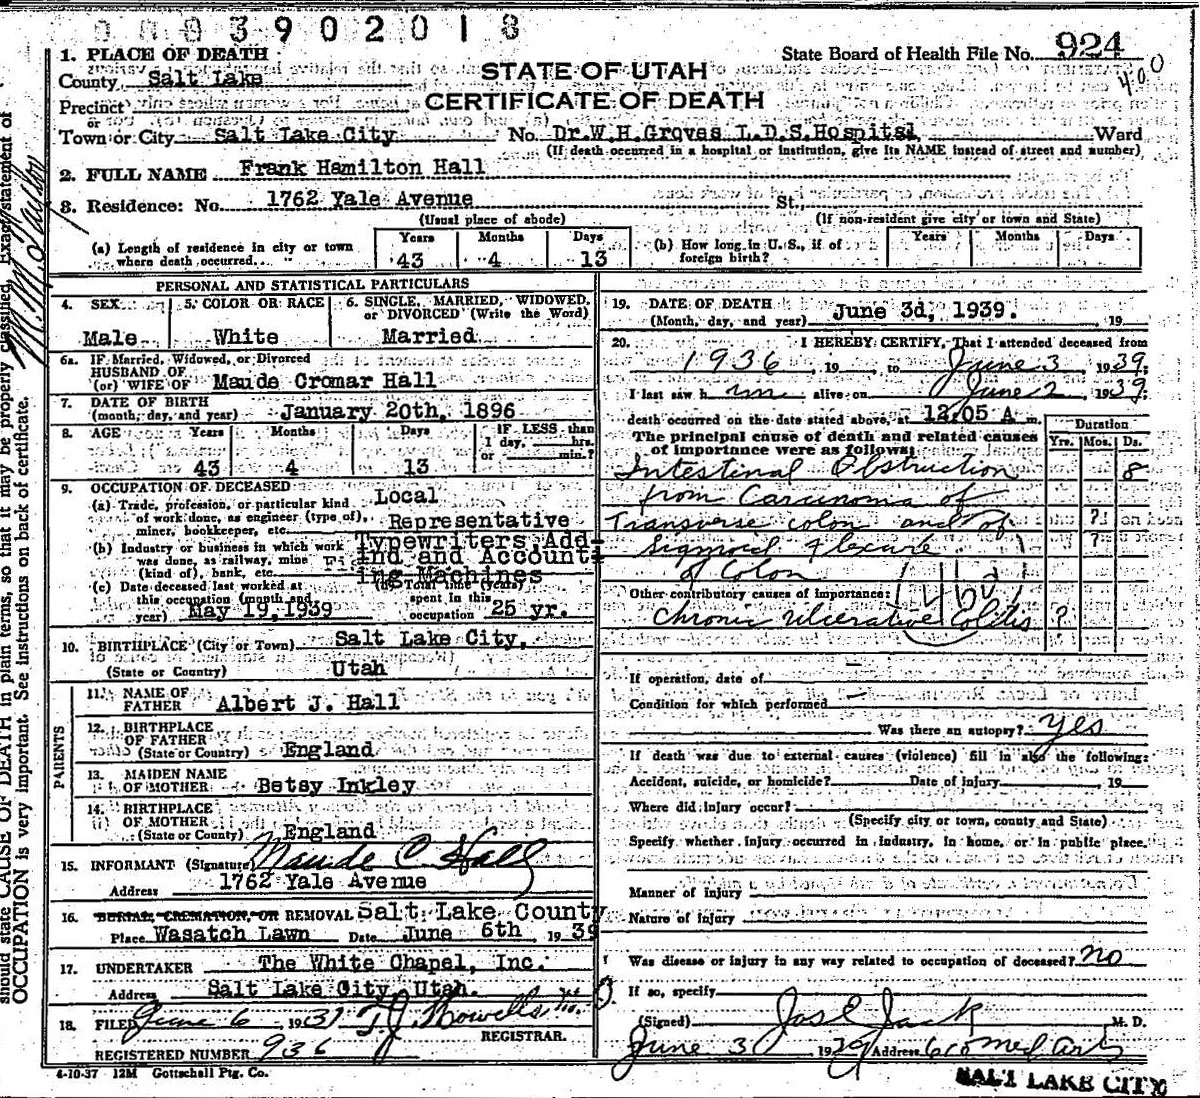 0 0 0 3 9 0 2 0 1 8
1. PLACE OF DEATH
State Board of Health File No. 924
400
County Salt Lake
STATE OF UTAH
Precinct
or
CERTIFICATE OF DEATH
Town or City Salt Lake City No. Dr.W.H.Groves L.D.S.Hospital Ward
(If death occurred in a hospital or institution, give its NAME instead of street and number)
2. FULL NAME Frank Hamilton Hall
3. Residence: No. 1762 Yale Avenue St.
(Usual place of abode) (If non-resident give city or town and State)
(a) Length of residence in city or town where death occurred. Years 43 Months 4 Days 13
(b) How long in U. S., if of foreign birth? Years Months Days
PERSONAL AND STATISTICAL PARTICULARS
4. SEX Male
5. COLOR OR RACE White
6. SINGLE, MARRIED, WIDOWED, or DIVORCED (Write the Word) Married
6a. IF Married, Widowed, or Divorced
HUSBAND OF
(or) WIFE OF Maude Cromar Hall
7. DATE OF BIRTH
(month, day, and year) January 20th, 1896
8. AGE Years 43 Months 4 Days 13
IF LESS than 1 day, hrs. or min.?
9. OCCUPATION OF DECEASED
(a) Trade, profession, or particular kind of work done, as engineer (type of), miner, bookkeeper, etc. Local Representative
(b) Industry or business in which work was done, as railway, mine (kind of), bank, etc. Typewriters, Add-
ind and Account-
ing Machines
(c) Date deceased last worked at this occupation (month and year) May 19, 1939
(d) Total time (years) spent in this occupation 25 yr.
10. BIRTHPLACE (City or Town) Salt Lake City,
(State or Country) Utah
PARENTS
11. NAME OF FATHER Albert J. Hall
12. BIRTHPLACE OF FATHER
(State or Country) England
13. MAIDEN NAME OF MOTHER Betsy Inkley
14. BIRTHPLACE OF MOTHER
(State or Country) England
15. INFORMANT (Signature) Maude C. Hall
Address 1762 Yale Avenue
16. BURIAL, CREMATION, OR REMOVAL Salt Lake County
Place Wasatch Lawn Date June 6th, 1939
17. UNDERTAKER The White Chapel, Inc.
Address Salt Lake City, Utah.
18. FILED June 6 193
REGISTRAR.
REGISTERED NUMBER 936
4-10-37 12M Gottschall Ptg. Co.
19. DATE OF DEATH
(Month, day, and year) June 3d, 1939. , 19
20. I HEREBY CERTIFY, That I attended deceased from
1936, 19 , to June 3, 1939;
I last saw h im alive on June 2 1939;
death occurred on the date stated above, at 12.05 A m.
The principal cause of death and related causes of importance were as follows:
Duration
Yrs. Mos. Ds.
Intestinal Obstruction 8
from Carcinoma of
Transverse colon and of ?
Sigmoid flexure ?
of Colon
Other contributory causes of importance:
Chronic ulcerative Colitis ?
46d
If operation, date of –
Condition for which performed –
Was there an autopsy? yes
If death was due to external causes (violence) fill in also the following:
Accident, suicide, or homicide? Date of injury , 19
Where did injury occur?
(Specify city or town, county and State)
Specify whether injury occurred in industry, in home, or in public place.
Manner of injury
Nature of injury
Was disease or injury in any way related to occupation of deceased? no
If so, specify
(Signed) Jos E Jack M. D.
June 3 1939 Address 610 Med Arts
SALT LAKE CITY
should state CAUSE OF DEATH in plain terms, so that it may be properly classified. Exact statement of
OCCUPATION is very important. See instructions on back of certificate.